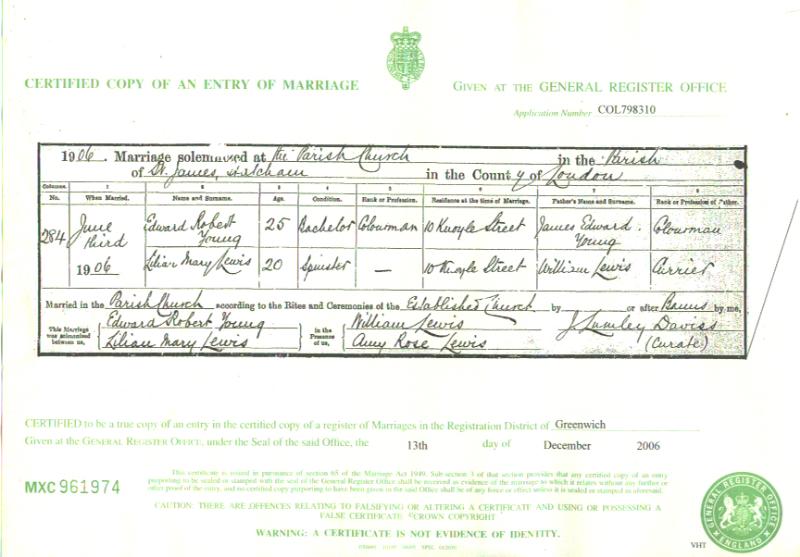 CERTIFIED COPY OF AN ENTRY OF MARRIAGE
GIVEN AT THE GENERAL REGISTER OFFICE
Application Number COL798310
1906. Marriage solemnized at the Parish Church in the Parish
of St. James, Hatcham in the County of London
Columns. 1 2 3 4 5 6 7 8
No. When Married. Name and Surname. Age. Condition. Rank or Profession. Residence at the time of Marriage. Father's Name and Surname. Rank or Profession of Father.
284 June Third 1906 Edward Robert Young 25 Bachelor Colourman 10 Knoyle Street James Edward Young Colourman
Lilian Mary Lewis 20 Spinster — 10 Knoyle Street William Lewis Currier
Married in the Parish Church according to the Rites and Ceremonies of the Established Church by or after Banns by me,
This Marriage was solemnized between us, Edward Robert Young in the Presence of us, William Lewis J. Lumley Daviss
Lilian Mary Lewis Amy Rose Lewis (Curate)
CERTIFIED to be a true copy of an entry in the certified copy of a register of Marriages in the Registration District of Greenwich
Given at the GENERAL REGISTER OFFICE, under the Seal of the said Office, the 13th day of December 2006
MXC 961974
This certificate is issued in pursuance of section 65 of the Marriage Act 1949. Sub-section 3 of that section provides that any certified copy of an entry
purporting to be sealed or stamped with the seal of the General Register Office shall be received as evidence of the marriage to which it relates without any further or
other proof of the entry, and no certified copy purporting to have been given in the said Office shall be of any force or effect unless it is sealed or stamped as aforesaid.
CAUTION: THERE ARE OFFENCES RELATING TO FALSIFYING OR ALTERING A CERTIFICATE AND USING OR POSSESSING A
FALSE CERTIFICATE ©CROWN COPYRIGHT
WARNING: A CERTIFICATE IS NOT EVIDENCE OF IDENTITY.
GENERAL REGISTER OFFICE
ENGLAND
VHT